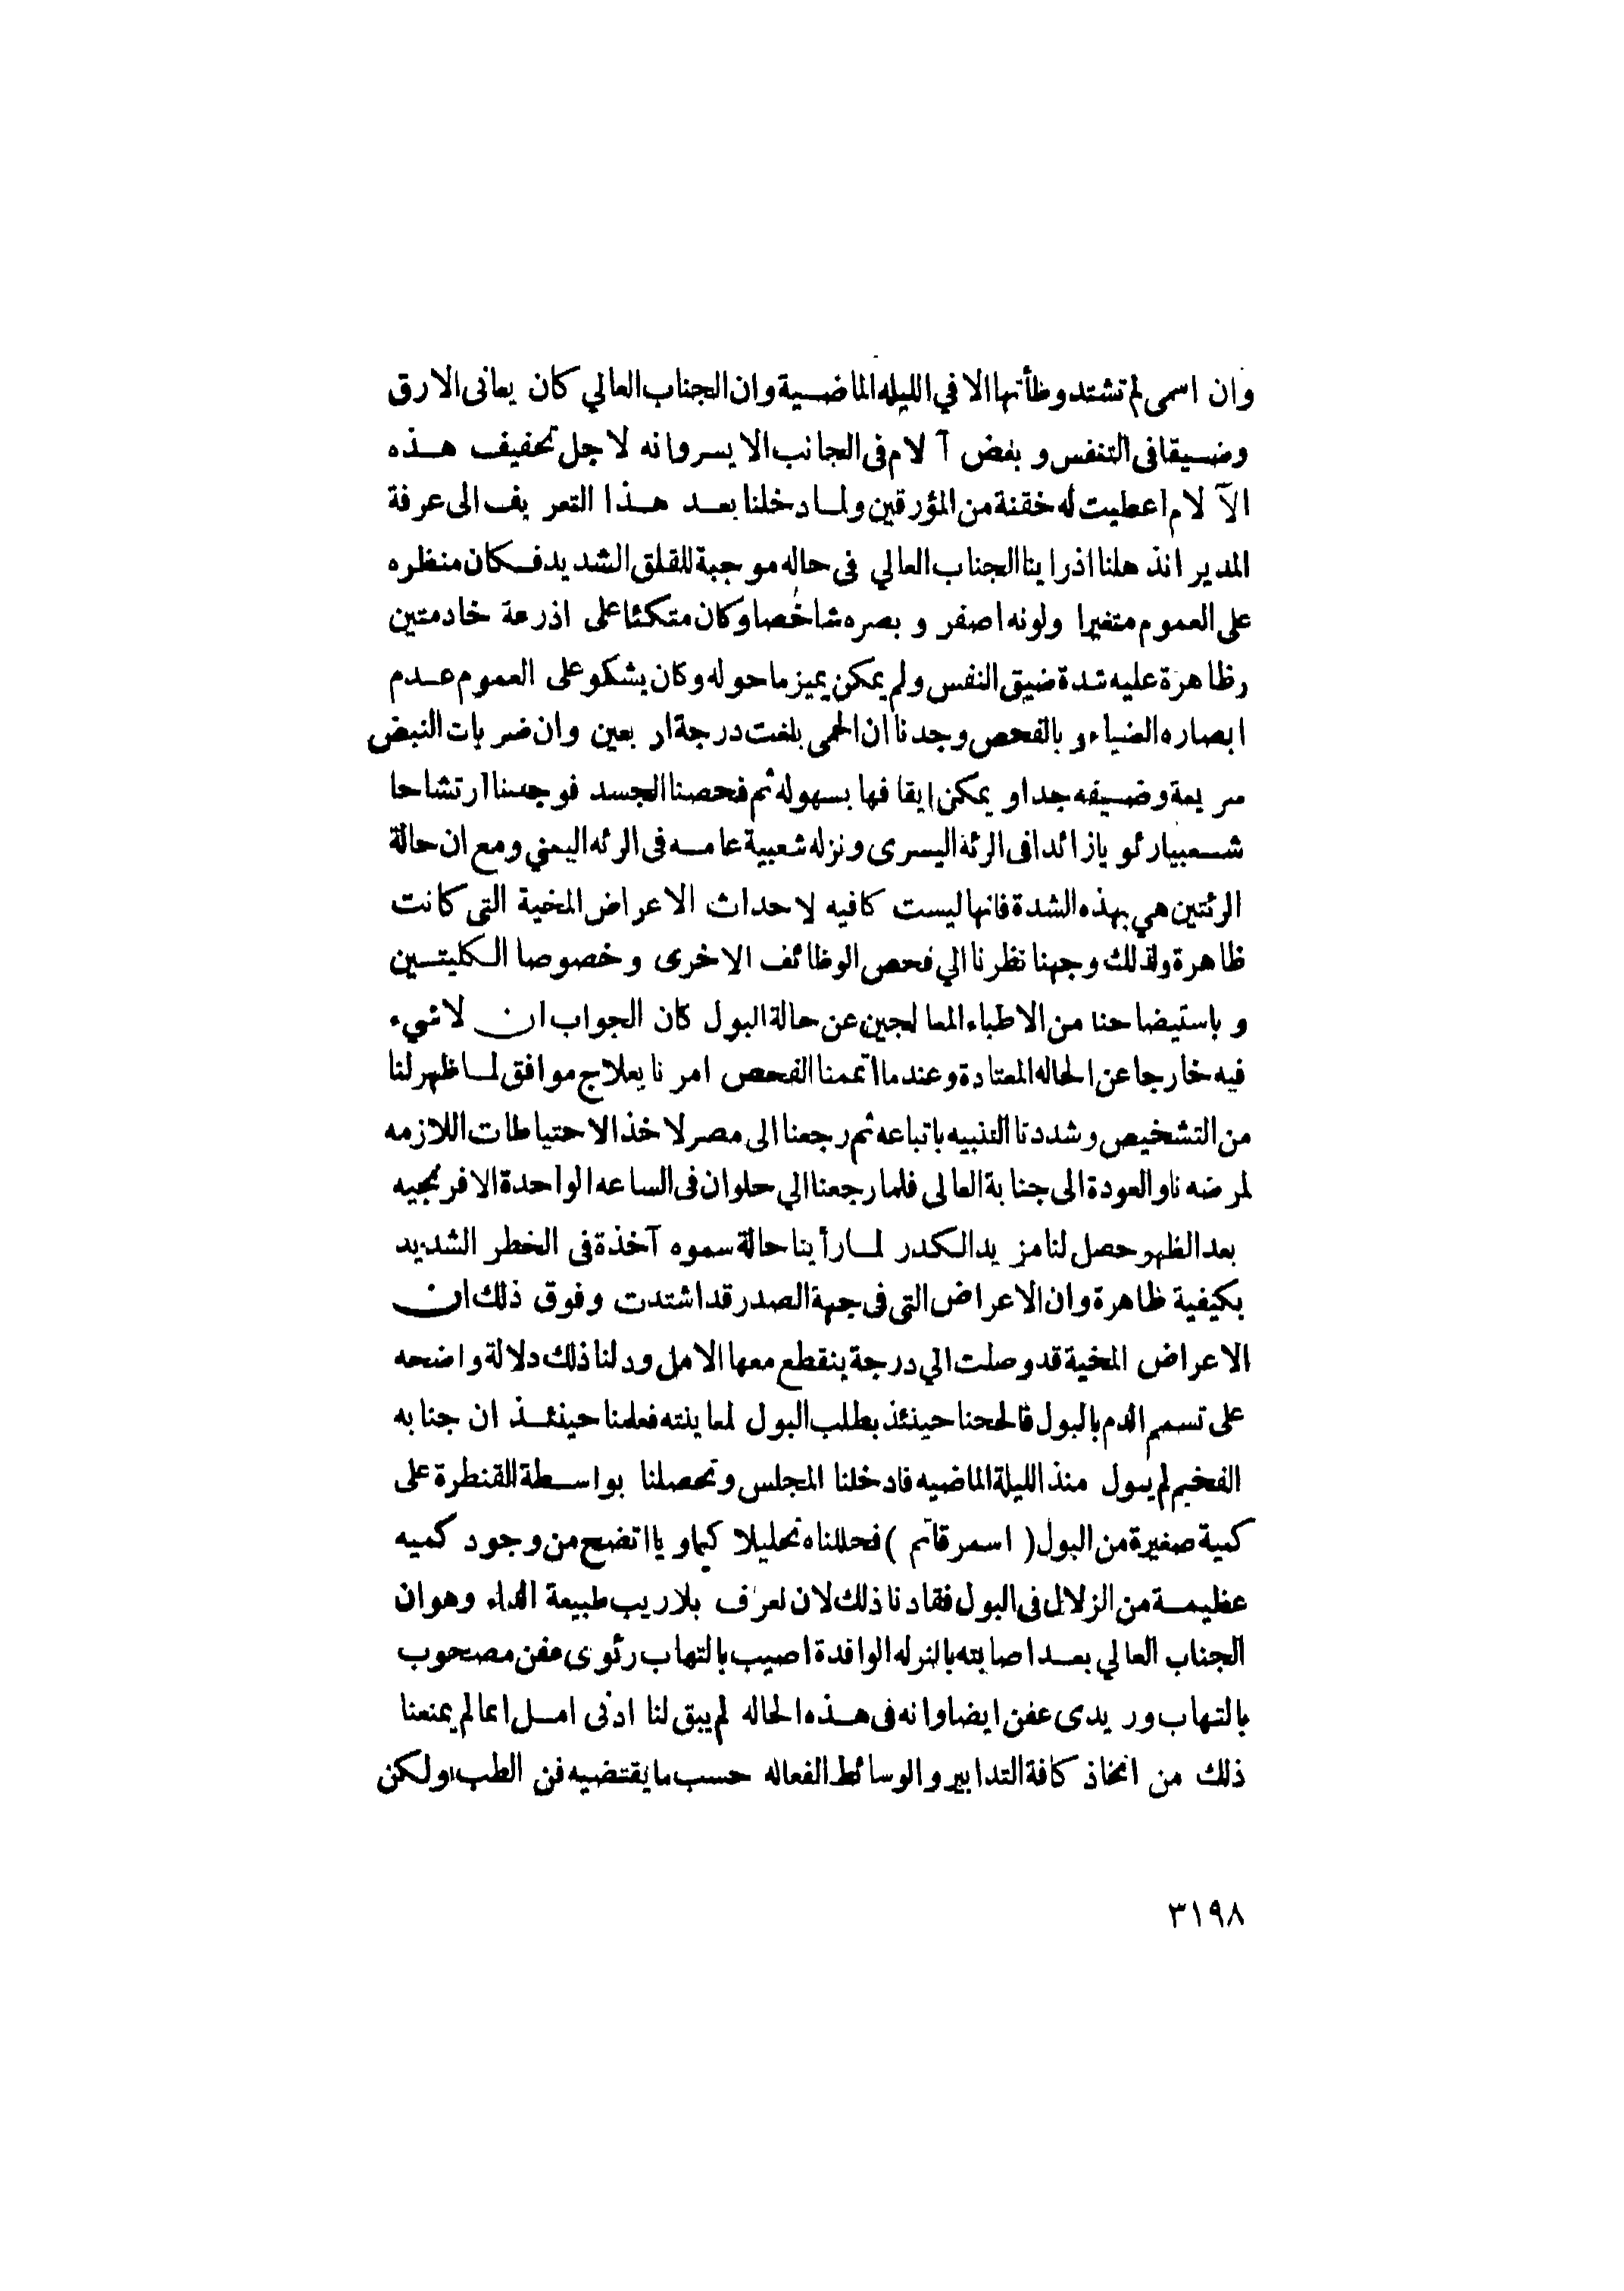 وان اسمى لم تشتد وطأتها الا في الليله الماضية وان الجناب العالي كان يعانى الارق
وضيقا فى التنفس و بعض آلام فى الجانب الايسر وانه لاجل تخفيف هذه
الآلام اعطيت له خقنة من المؤرقين ولما دخلنا بعد هذا التعريف الى عرفة
المدير انذهلنا اذ راينا الجناب العالي فى حاله موجبة للقلق الشديد فكان منظره
على العموم متغيرا ولونه اصفر و بصره شاخصا وكان متكئا على اذرعة خادمتين
رظاهرة عليه شدة ضيق النفس ولم يمكن يميز ما حوله وكان يشكو على العموم عدم
ابصاره الضياء و بالفحص وجدنا ان الحمى بلغت درجة اربعين وان ضربات النبض
سريعة وضعيفه جدا و يمكن ايقافها بسهوله ثم فحصنا الجسد فوجدنا ارتشاحا
شعبيا رئويا زائدا فى الرئة اليسرى ونزله شعبية عامه فى الرئه اليمني ومع ان حالة
الرئتين هي بهذه الشدة فانها ليست كافيه لاحداث الاعراض المخية التى كانت
ظاهرة ولذلك وجهنا نظرنا الي فحص الوظائف الاخرى وخصوصا الكليتين
و باستيضاحنا من الاطباء المعالجين عن حالة البول كان الجواب ان لاشيء
فيه خارجا عن الحاله المعتادة وعندما اتممنا الفحص امرنا بعلاج موافق لما ظهر لنا
من التشخيص وشددنا التنبيه باتباعه ثم رجعنا الى مصر لاخذ الاحتياطات اللازمه
لمرضه ناو العودة الى جنابة العالى فلما رجعنا الي حلوان فى الساعه الواحدة الافرنجيه
بعد الظهر حصل لنا مزيد الكدر لما رأينا حالة سموه آخذة فى الخطر الشديد
بكيفية ظاهرة وان الاعراض التى فى جهة الصدر قد اشتدت وفوق ذلك ان
الاعراض المخية قد وصلت الي درجة ينقطع معها الامل ودلنا ذلك دلالة واضحه
على تسمم الدم بالبول فالححنا حينئذ بطلب البول لمعاينته فعلمنا حينئذ ان جنابه
الفخيم لم يبول منذ الليلة الماضيه فادخلنا المجلس وتحصلنا بواسطة القنطرة على
كمية صغيرة من البول ( اسمر قاتم ) فحللناه تحليلا كيماويا اتضح من وجود كميه
عظيمة من الزلال فى البول فقادنا ذلك لان نعرف بلاريب طبيعة الداء وهو ان
الجناب العالي بعد اصابته بالنزله الوافدة اصيب بالتهاب رئوى عفن مصحوب
بالتهاب وريدى عفن ايضا وانه فى هذه الحاله لم يبق لنا ادنى امل انما لم يمنعنا
ذلك من اتخاذ كافة التدابير والوسائط الفعاله حسب ما يقتضيه فن الطب ولكن
٣١٩٨